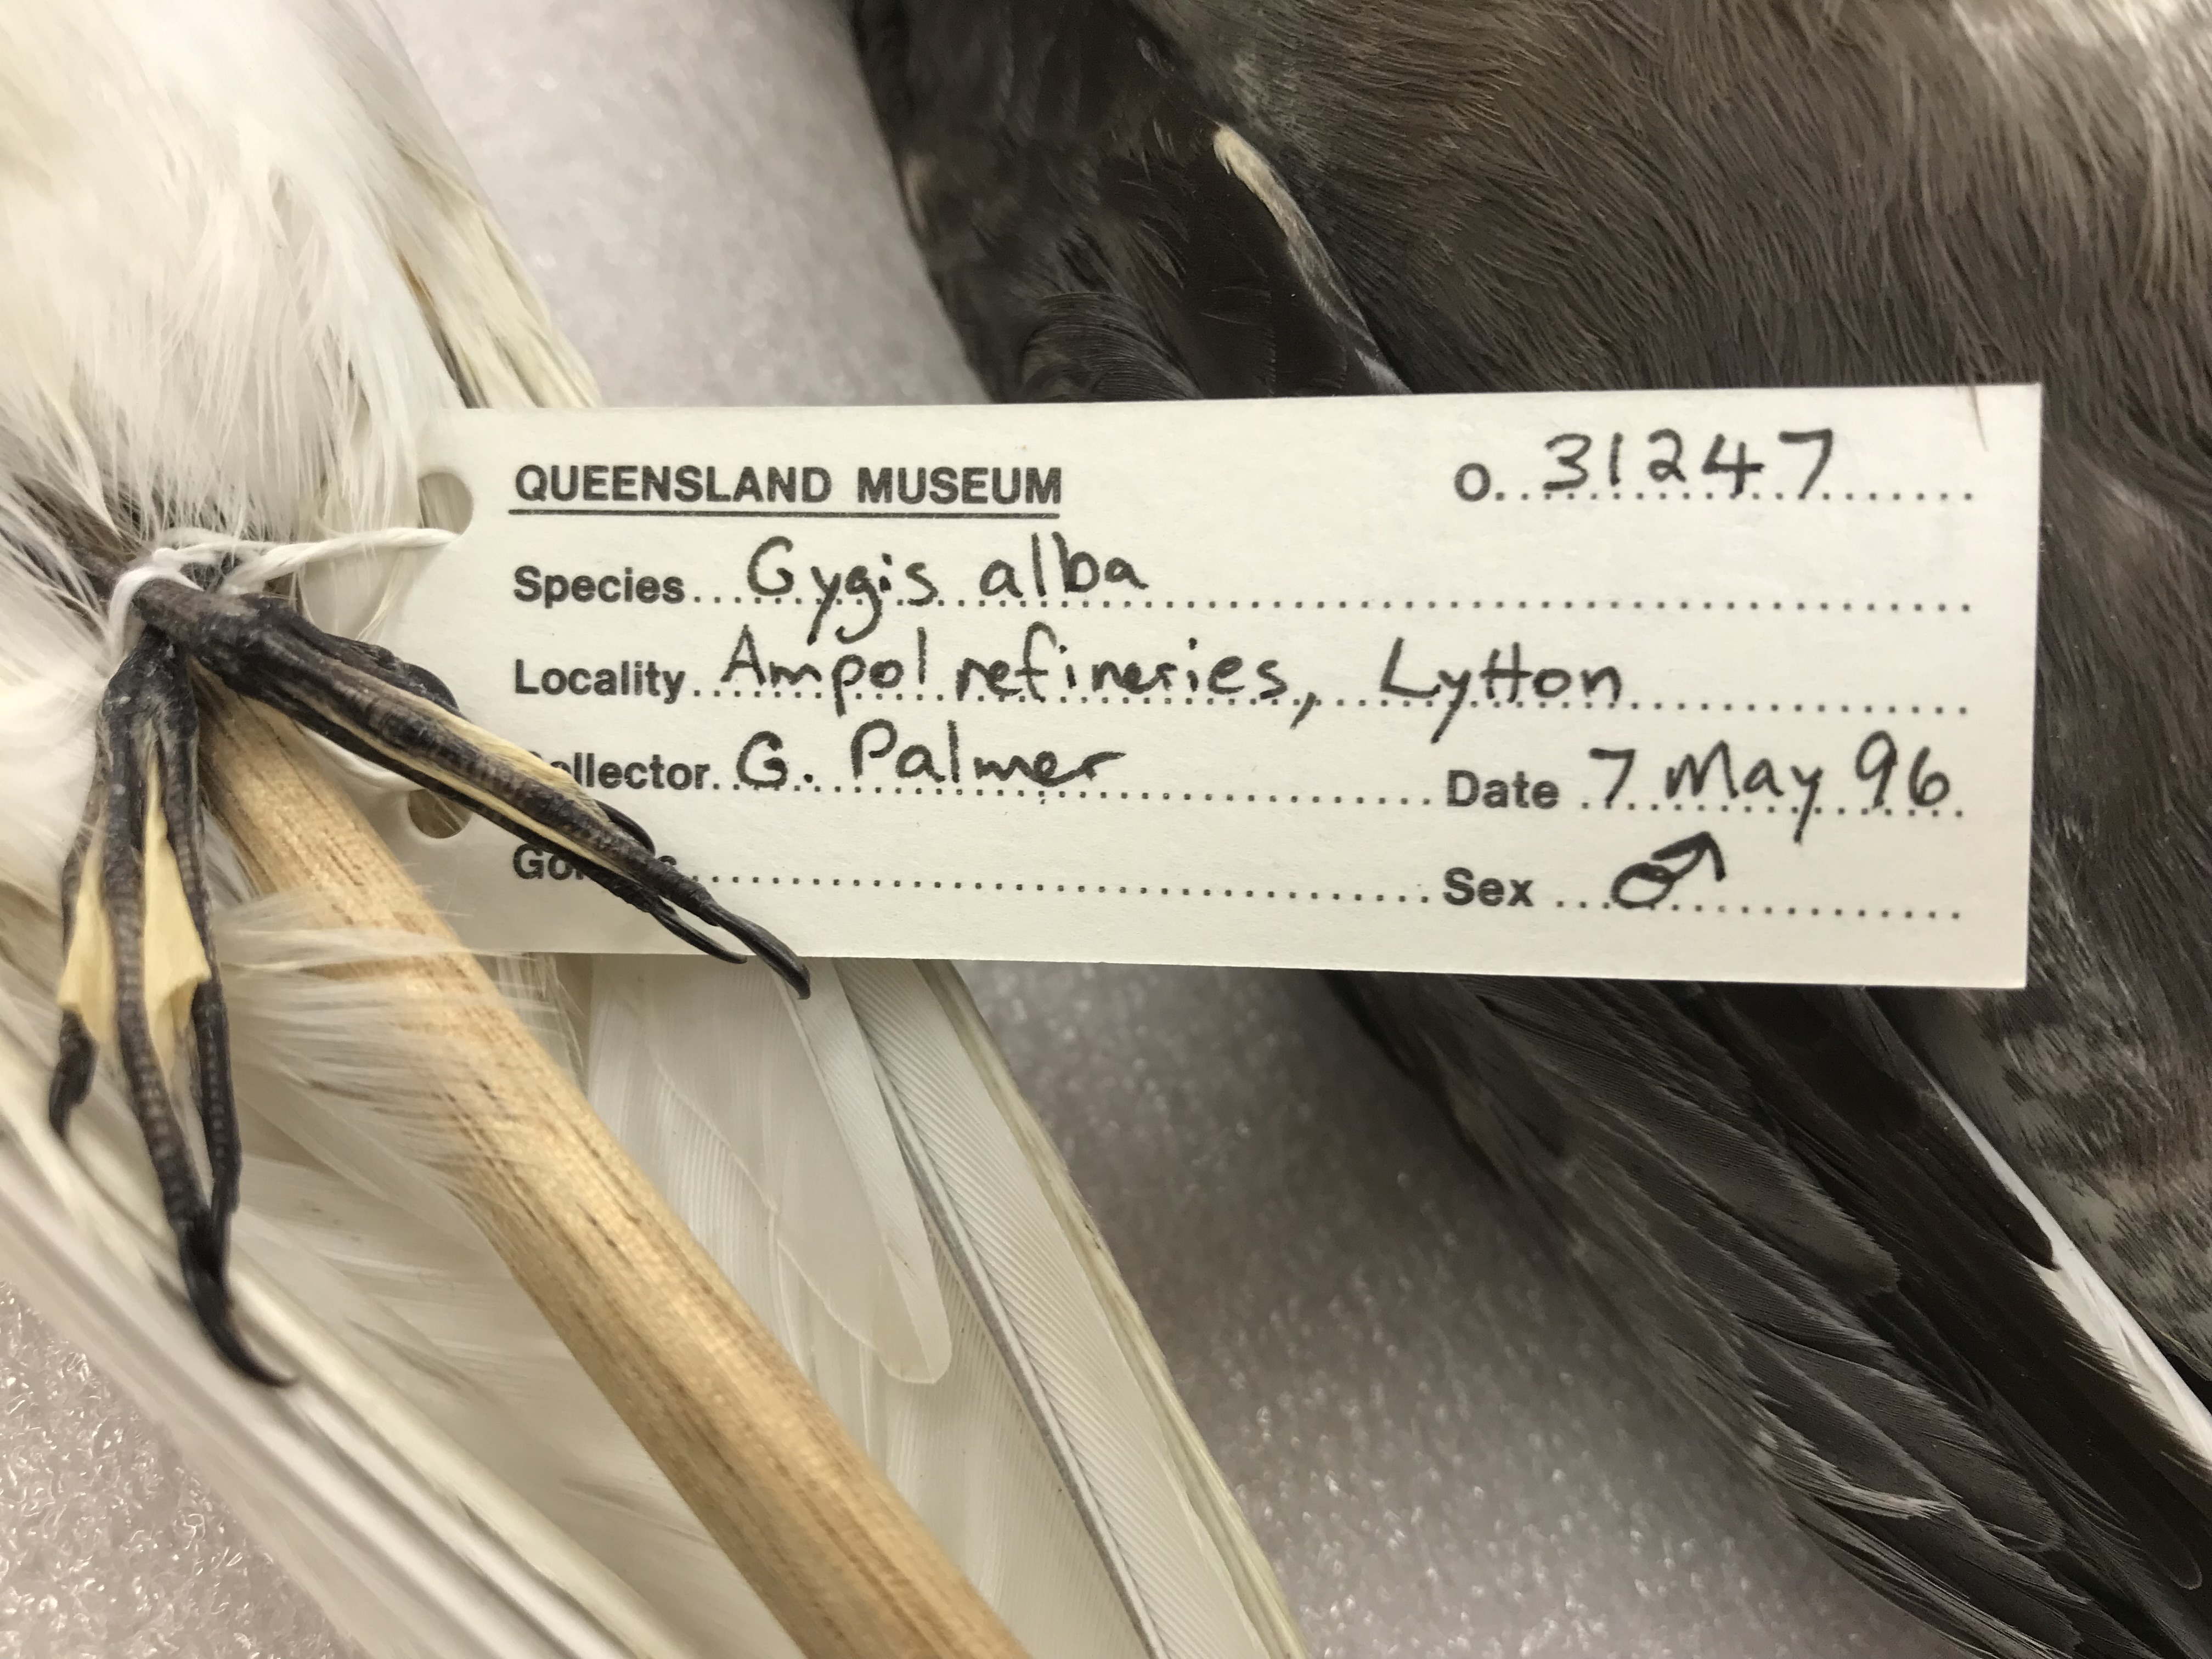 QUEENSLAND MUSEUM O. 31247
Species Gygis alba
Locality Ampol refineries, Lytton
Collector G. Palmer Date 7 May 96
Sex ♂